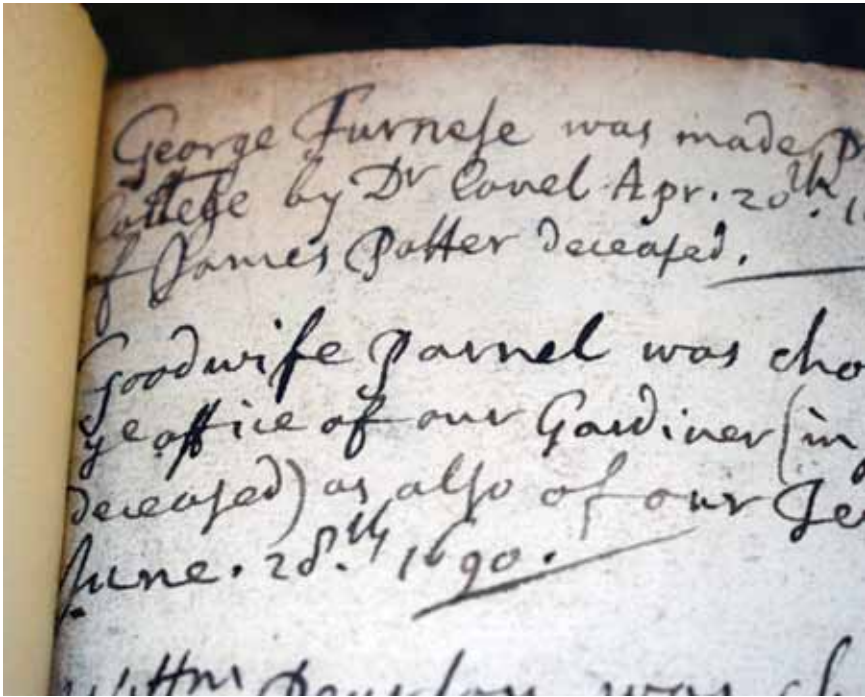 George Furnese was made P
Colledge by Dr Covel Apr. 20th. 1
of James Potter deceased.
Goodwife Parnel was cho
ye office of our Gardiner (in
deceased) as also of our Je
June. 28.th 1690.
was ch